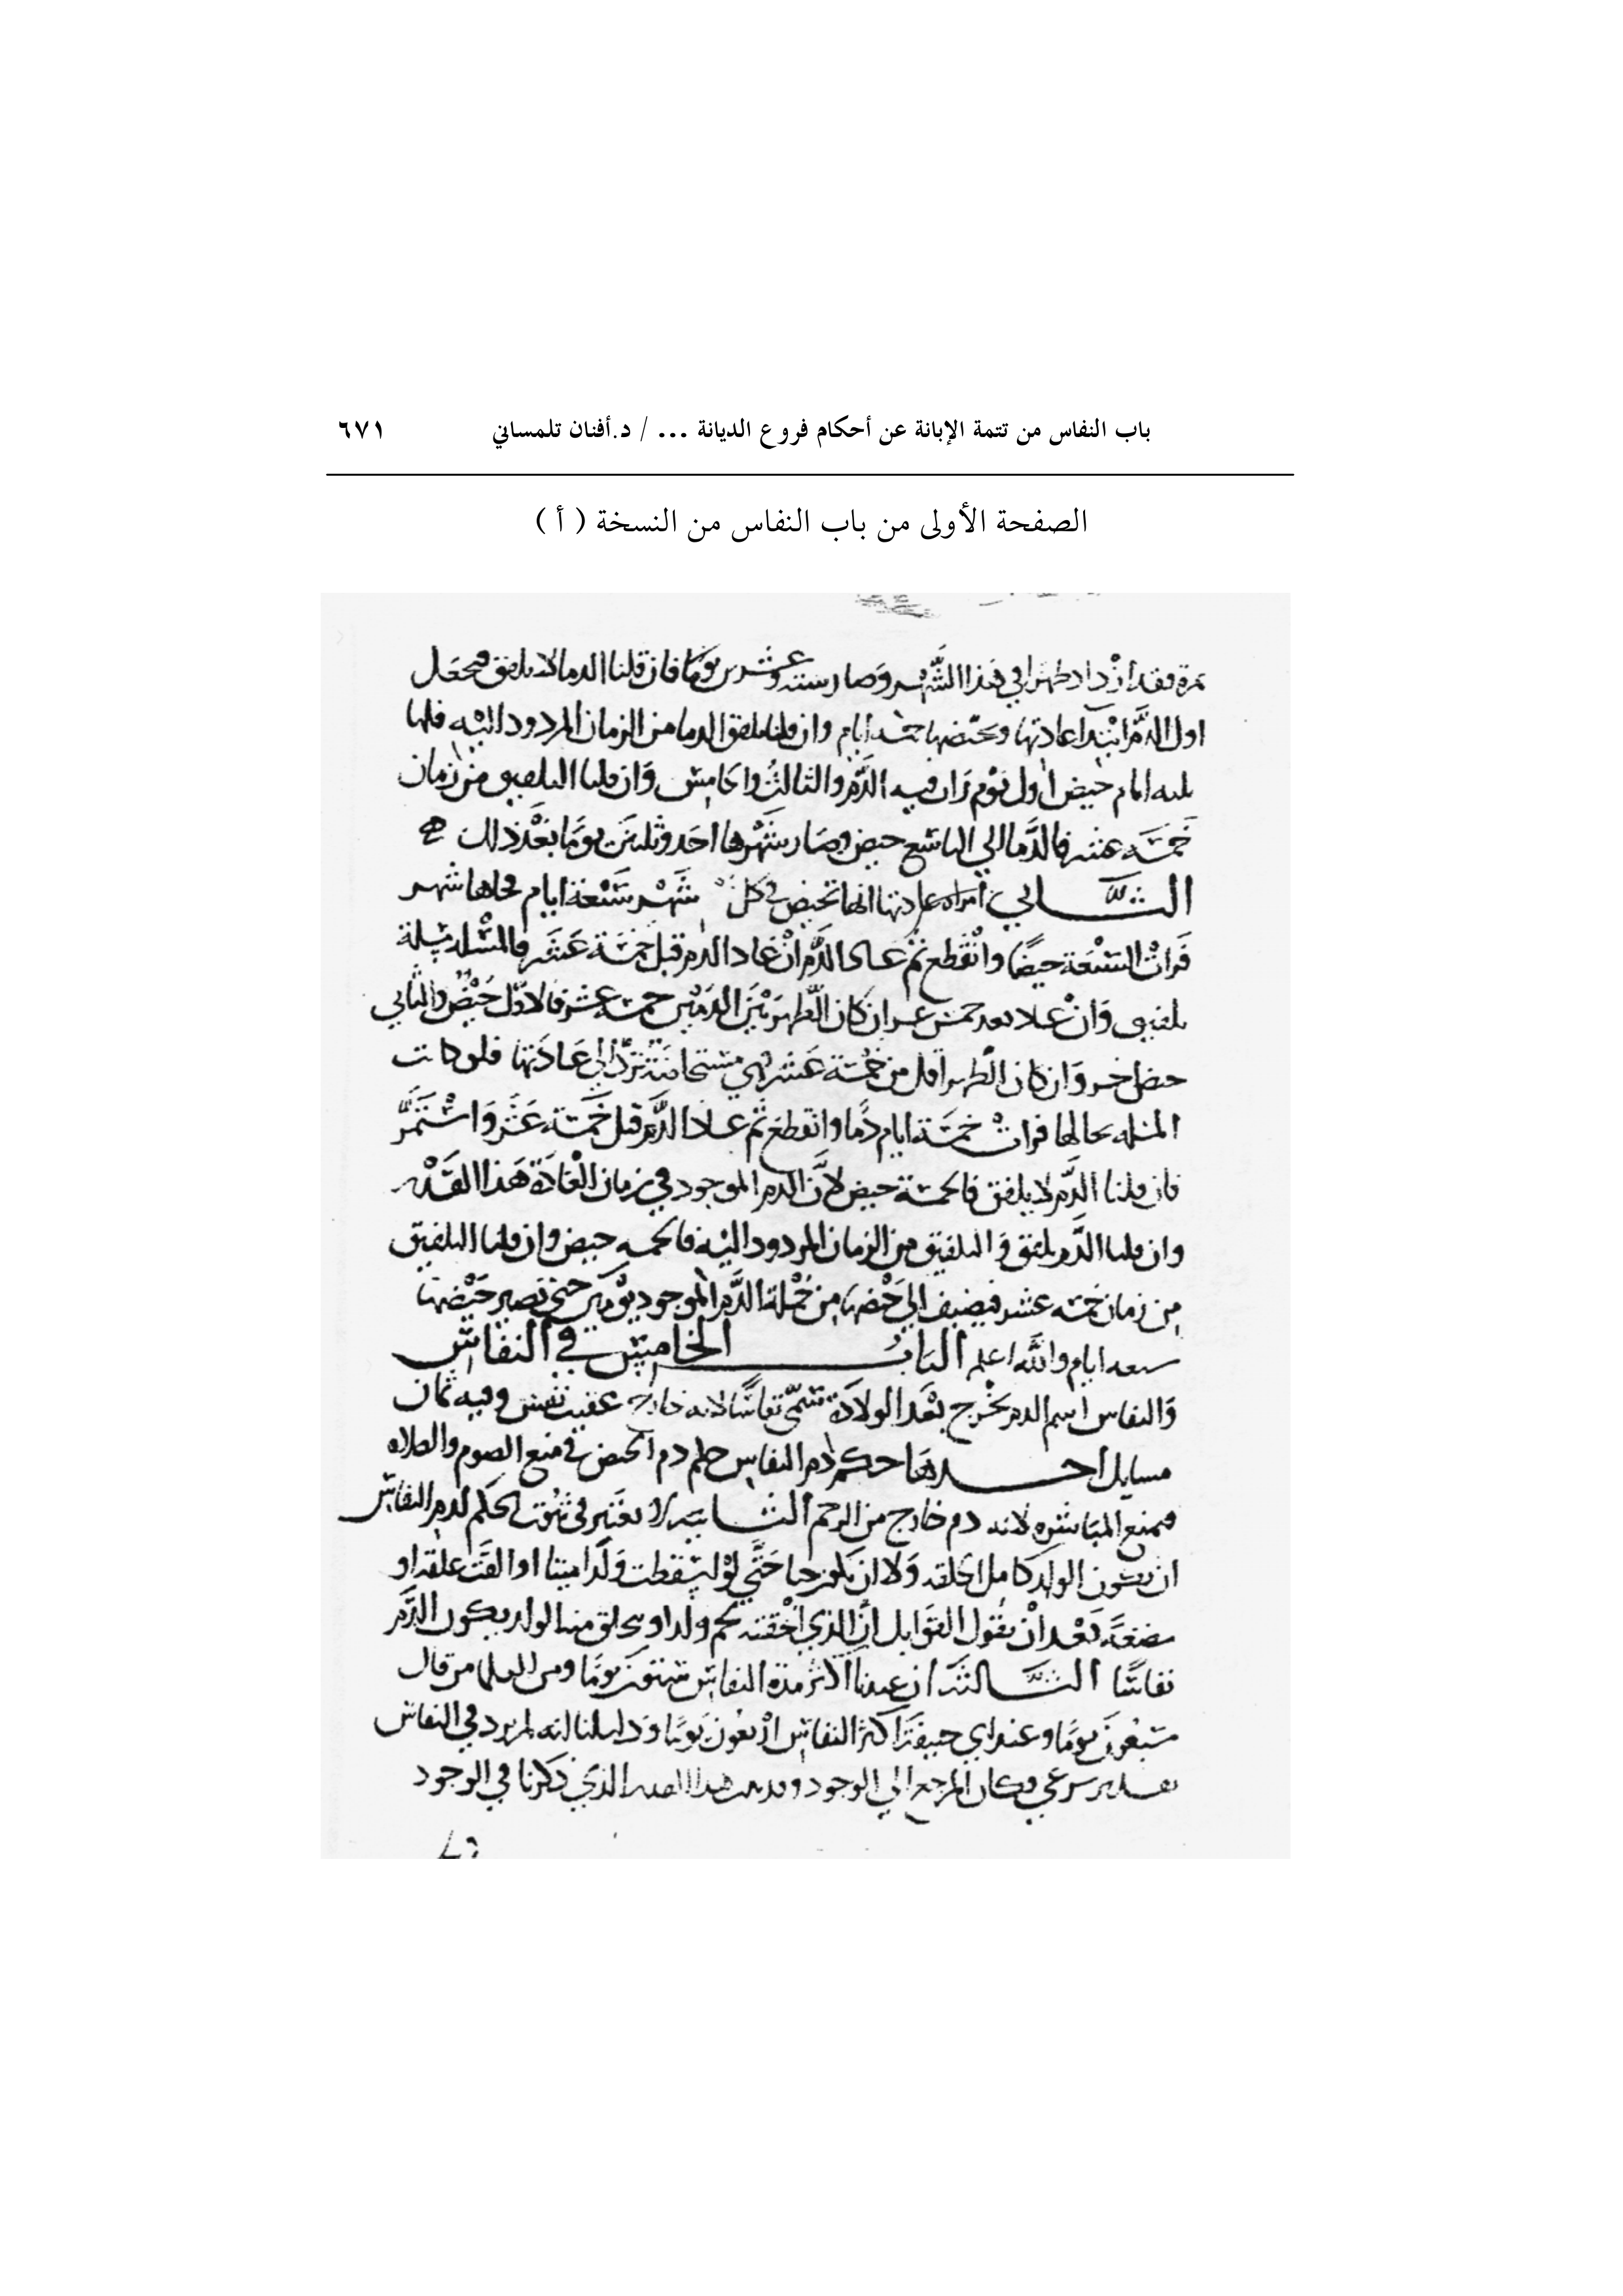 باب النفاس من تتمة الإبانة عن أحكام فروع الديانة ... / د.أفنان تلمساني ٦٧١
الصفحة الأولى من باب النفاس من النسخة ( أ )
مرة فقد ازداد طهرا في هذا الشهر وصار ستة وعشرين يوما فان قلنا الدما لا يلفق فيجعل
اول الدم ابتدا عادتها ويحيضها خمسة ايام وان قلنا يلفق الدما من الزمان المردود اليه فلها
ثلثه ايام حيض اول يوم رات فيه الدم والثالث والخامس وان قلنا التلفيق من زمان
خمسة عشر فالدما الي التاسع حيض وصار شهرها احد وثلثين يوما بعد ذلك
الثاني امراه عادتها انها تحيض في كل شهر تسعة ايام فجاها شهر
فرات التسعة حيضا وانقطع ثم عاد الدم ان عاد الدم قبل خمسة عشر فالمسله مسلة
تلفيق وان عاد بعد خمس عشر ان كان الطهر بين الدمين خمسة عشر فالاول حيض والثاني
حيض اخر وان كان الطهر اقل من خمسة عشر فهي مستحاضة ترد الي عادتها فلو كانت
المسله بحالها فرات خمسة ايام دما وانقطع ثم عاد الدم قبل خمسة عشر واستمر
فان قلنا الدم لا يلفق فالخمسة حيض لان الدم الموجود في زمان العادة هذا القدر
وان قلنا الدم يلفق والتلفيق من الزمان المردود اليه فالخمسه حيض وان قلنا التلفيق
من زمان خمسه عشر فيضيف الي حيضها من جملة الدم الموجود يومين حتي تصير حيضها
سبعه ايام والله اعلم الباب الخامس في النفاس
والنفاس اسم الدم يخرج بعد الولادة تسمي نفاسا لانه خارج عقيب نفس وفيه ثمان
مسايل احدها حكم دم النفاس حكم دم الحيض في منع الصوم والصلاه
ومنع المباشره لانه دم خارج من الرحم الثانيه لا يعتبر في ثبوت الحكم لدم النفاس
ان يكون الولد كامل الخلقه ولا ان يكون حيا حتي لو اسقطت ولدا ميتا او القت علقه او
مضغة بعد ان يقول القوابل ان الذي القته لحم ولد او يخلق منه الولد يكون الدم
نفاسا الثالثة ان عندنا اكثر مدة النفاس ستون يوما ومن العلما من قال
سبعون يوما وعند ابي حنيفة اكثر النفاس اربعون يوما ودليلنا انه لم يرد في النفاس
تقدير شرعي وكان المرجع الي الوجود وقد ثبت هذا القدر الذي ذكرنا في الوجود